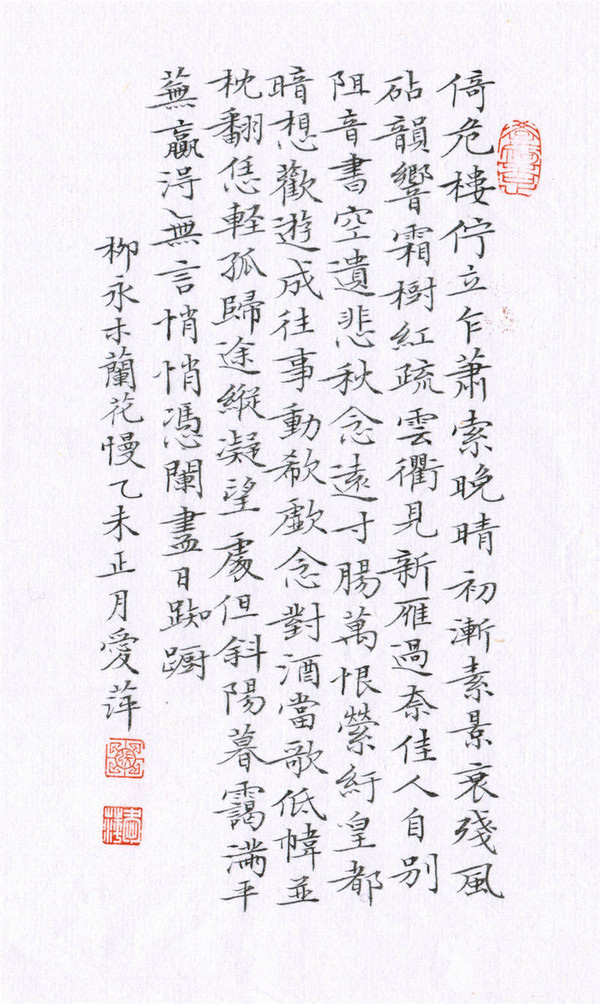 倚危樓佇立乍蕭索晚晴初漸素景衰殘風
砧韻響霜樹紅疏雲衢見新雁過奈佳人自別
阻音書空遺悲秋念遠寸腸萬恨縈紆皇都
暗想歡遊成往事動欷歔念對酒當歌低幃並
枕翻恁輕孤歸途縱凝望處但斜陽暮靄滿平
蕪贏得無言悄悄憑闌盡日踟躕
柳永木蘭花慢乙未正月愛萍